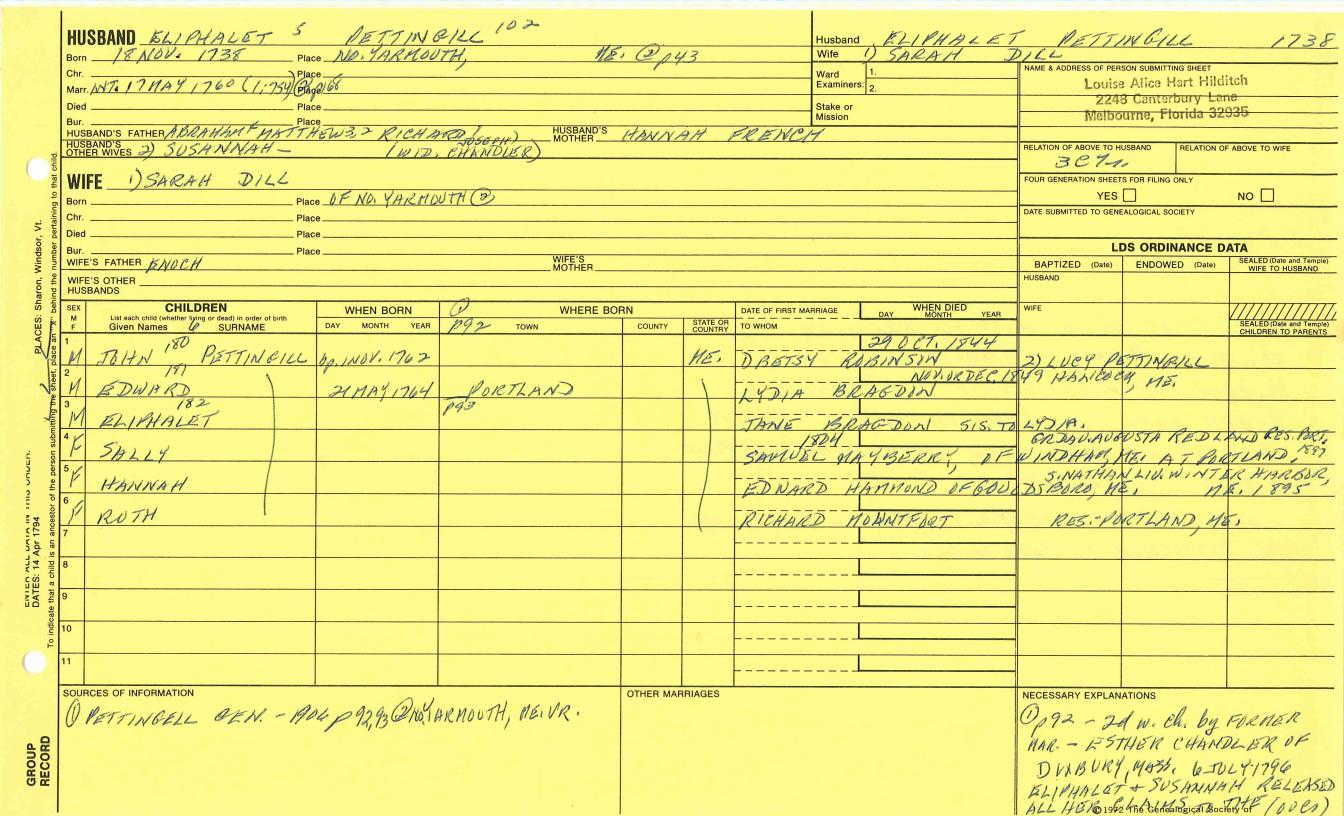 HUSBAND ELIPHALET 5 PETTINGILL 102
Born 18 NOV. 1738 Place NO. YARMOUTH, ME. ② p43
Chr. Place
Marr. INT. 17 MAY 1760 (1:754) ② p168 Place
Died Place
Bur. Place
HUSBAND'S FATHER ABRAHAM4 MATTHEW3,2 RICHARD1 HUSBAND'S MOTHER HANNAH FRENCH
HUSBAND'S OTHER WIVES 2) SUSANNAH — (WID. JOSEPH) CHANDLER)
Husband ELIPHALET PETTINGILL 1738
Wife 1) SARAH DILL
Ward Examiners: 1.
2.
Stake or Mission
NAME & ADDRESS OF PERSON SUBMITTING SHEET
Louise Alice Hart Hilditch
2248 Canterbury Lane
Melbourne, Florida 32935
RELATION OF ABOVE TO HUSBAND RELATION OF ABOVE TO WIFE
FOUR GENERATION SHEETS FOR FILING ONLY
YES NO
DATE SUBMITTED TO GENEALOGICAL SOCIETY
LDS ORDINANCE DATA
BAPTIZED (Date) ENDOWED (Date) SEALED (Date and Temple) WIFE TO HUSBAND
HUSBAND
WIFE
SEALED (Date and Temple) CHILDREN TO PARENTS
WIFE 1) SARAH DILL
Born Place OF NO. YARMOUTH ②
Chr. Place
Died Place
Bur. Place
WIFE'S FATHER ENOCH WIFE'S MOTHER
WIFE'S OTHER HUSBANDS
SEX M F
CHILDREN
List each child (whether living or dead) in order of birth
Given Names 6 SURNAME
WHEN BORN
DAY MONTH YEAR
① p92
WHERE BORN
TOWN COUNTY STATE OR COUNTRY
DATE OF FIRST MARRIAGE
TO WHOM
WHEN DIED
DAY MONTH YEAR
1 M JOHN 180 PETTINGILL bp. NOV. 1762 ME. 29 OCT. 1844
1) BETSY ROBINSON 2) LUCY PETTINGILL
2 M EDWARD 181 21 MAY 1764 PORTLAND NOV. OR DEC. 1849 HANCOCK, ME.
LYDIA BRAGDON
3 M ELIPHALET 182 p93
JANE BRAGDON SIS. TO LYDIA.
4 F SALLY 1804 GRDAU. AUGUSTA REDLAND RES. PORT. 1897
SAMUEL MAYBERRY, OF WINDHAM, ME. AT PORTLAND.
5 F HANNAH S. NATHAN LIV. WINTER HARBOR,
EDWARD HAMMOND OF GOULDSBORO, ME. ME. 1895
6 F RUTH
RICHARD MOUNTFORT RES.-PORTLAND, ME.
7
8
9
10
11
SOURCES OF INFORMATION
① PETTINGELL GEN. - 1906 p92,93 ② NO. YARMOUTH, ME. VR.
OTHER MARRIAGES
NECESSARY EXPLANATIONS
① p92 - 2d w. ch. by FORMER
MAR. - ESTHER CHANDLER OF
DUXBURY, MASS. 6 JULY 1796
ELIPHALET & SUSANNAH RELEASED
ALL HER CLAIMS TO THE (over)
©1972 The Genealogical Society of
PLACES: Sharon, Windsor, Vt.
ENTER ALL DATA IN THIS ORDER:
DATES: 14 Apr 1794
To indicate that a child is an ancestor of the person submitting the sheet, place an "X" behind the number pertaining to that child.
GROUP RECORD